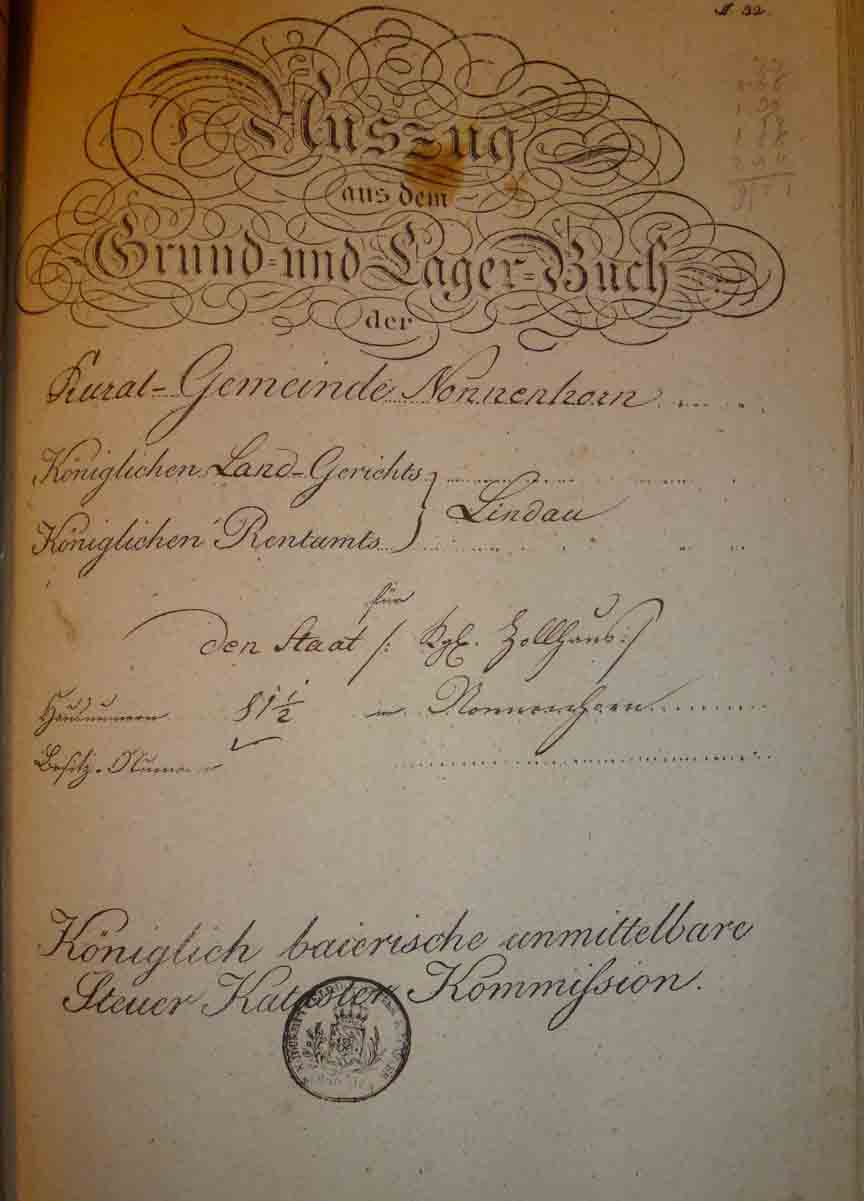 N. 32.
Auszug
aus dem
Grund- und Lager-Buch
der
Rural-Gemeinde Nonnenhorn
Königlichen Land-Gerichts
Lindau
Königlichen Rentamts
für
den Staat /: Kgl. Zollhaus :/
Hausnummern 81 1/2 in Nonnenhorn
Besitz-Numer
Königlich baierische unmittelbare
Steuer Kataster Kommission.